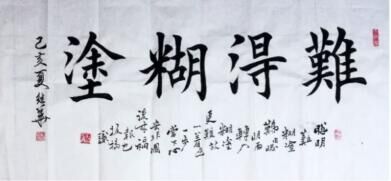 難得糊塗
聰明
難
糊塗
難由聰
明而
轉入
糊塗
更難放
一著退
一步
當下心
安非圖
後來福
報也
板橋
識
己亥夏